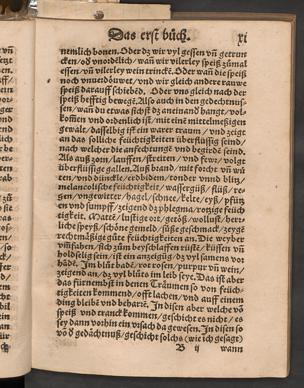 Das erst büch. xj
nemlich bonen. Oder dz wir vyl gessen vñ getrun
cken/od vnordēlich/ wañ wir vilerley speiß zůmal
essen/vñ vilerley wein trincke. Oder wañ die speiß
noch vnuerdöuwet/vnd wir gleich andere rauwe
speiß darauff schibēd. Oder vns gleich nach der
speiß hefftig bewegē. Als auch in den gedechtnus
sen/ wañ du etwas sichst dz aneinand hangt/vol
kom̄en vnd ordenlich ist/ mit eine mittelmeßigen
gewalt/ dasselbig ist ein warer traum/ vnd zeigt
an das sölliche feüchtigkeiten überflüssig seind/
nach welcher die anfechtunge vnd begirde seind.
Als auß zorn/lauffen/streiten/vnd fewr/ volgt
überflüssige gallen. Auß brand/ mit forcht vñ wů
ten/ vnd dünckle/ erdbidem/ donder vnnd blix/
melancolische feüchtigkeit/ wassergüß/ flüß/ re-
gen/vngewitter/ hagel/schnee/ kelte/cyß/pfün
en vnd sumpff/ zeigend dz phlegma/
feücht
igkeit. Matte/ lustige ort/ /wollust/
liche speyß/schöne gemeld/süße geschmack/zeygē
rechtmäßige güte feüchtigkeiten an. Die weyber
vmfahen/sich zůn beyschlaffen rüstē/küssen vñ
holdselig sein/ist ein anzeigūg/dz vyl samens vor
Im blůt bad/ vor rosen/purpur vñ wein/
zeigend an/ dz vyl blůts im leib seye. Das ist aber
das fürnembst in denen Träumen so von feüch-
digkeiten kommend/ offt lachen/ vnd auff einem
ding bleibt vnd beharrē. In disen aber welche vō
speiß vnd tranck kommen/geschicht es nicht/ es
sey dann vorhin ein vrsach da gewesen. In disen so
vō d gedächtnuß/ geschicht solchs (wie ich gesagt)
B ij wann